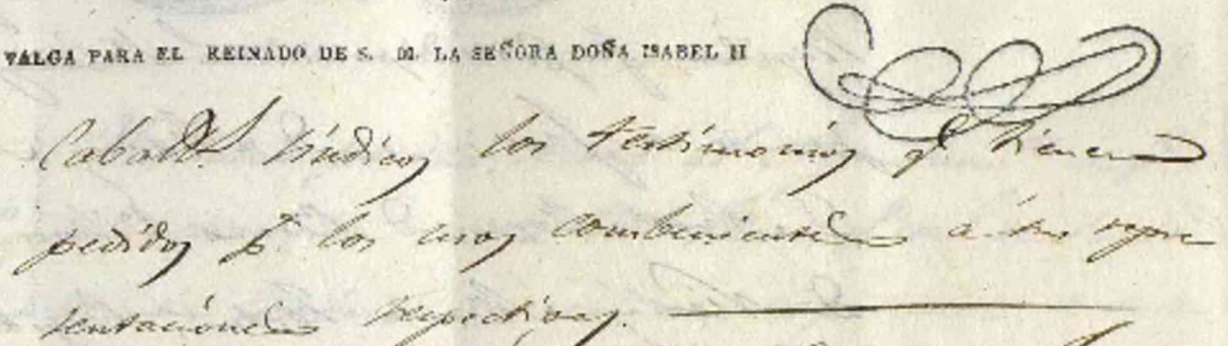 VALGA PARA EL REINADO DE S. M. LA SEÑORA DOÑA ISABEL II
Caballs. Síndicos los testimonios q.e tienen
pedidos p.a los usos combenientes á sus repre
sentaciones respectivas.